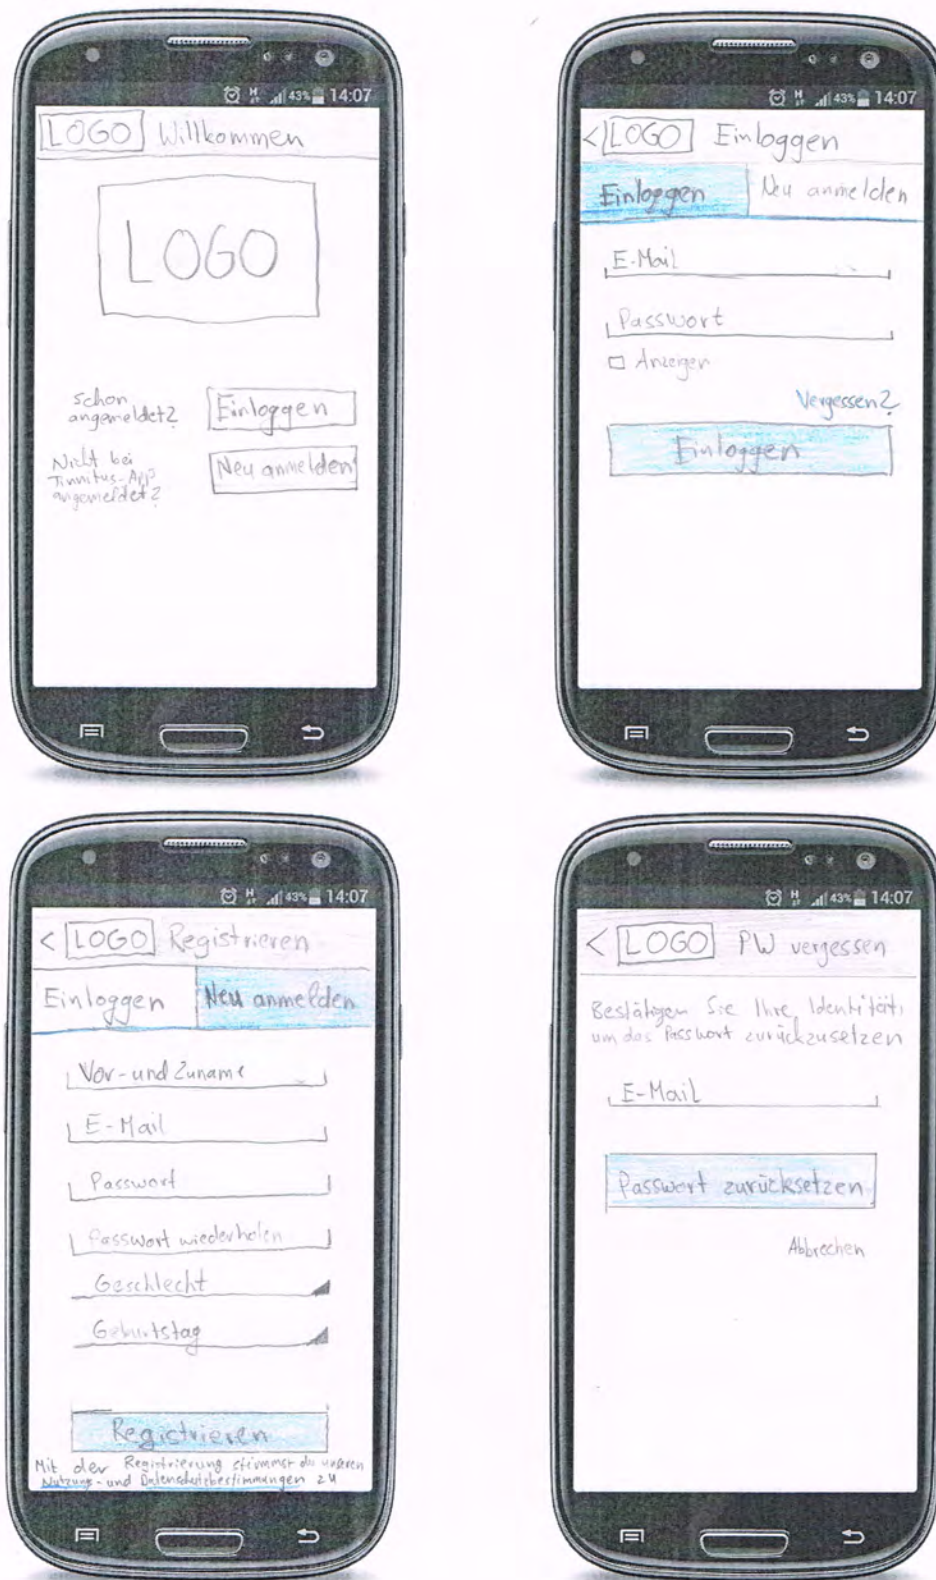 43% 14:07
LOGO Willkommen
LOGO
schon
angemeldet?
Einloggen
Nicht bei
Tinnitus-App
angemeldet?
Neu anmelden
43% 14:07
< LOGO Einloggen
Einloggen Neu anmelden
E-Mail
Passwort
Anzeigen
Vergessen?
Einloggen
43% 14:07
< LOGO Registrieren
Einloggen Neu anmelden
Vor- und Zuname
E-Mail
Passwort
Passwort wiederholen
Geschlecht
Geburtstag
Registrieren
Mit der Registrierung stimmst du unseren
Nutzungs- und Datenschutzbestimmungen zu
43% 14:07
< LOGO PW vergessen
Bestätigen Sie Ihre Identität,
um das Passwort zurückzusetzen
E-Mail
Passwort zurücksetzen
Abbrechen